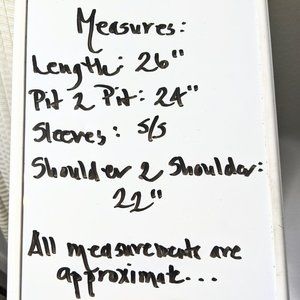 Measures:
Length: 26"
Pit 2 Pit: 24"
Sleeves: S/S
Shoulder 2 Shoulder:
22"
All measurements are
approximate...